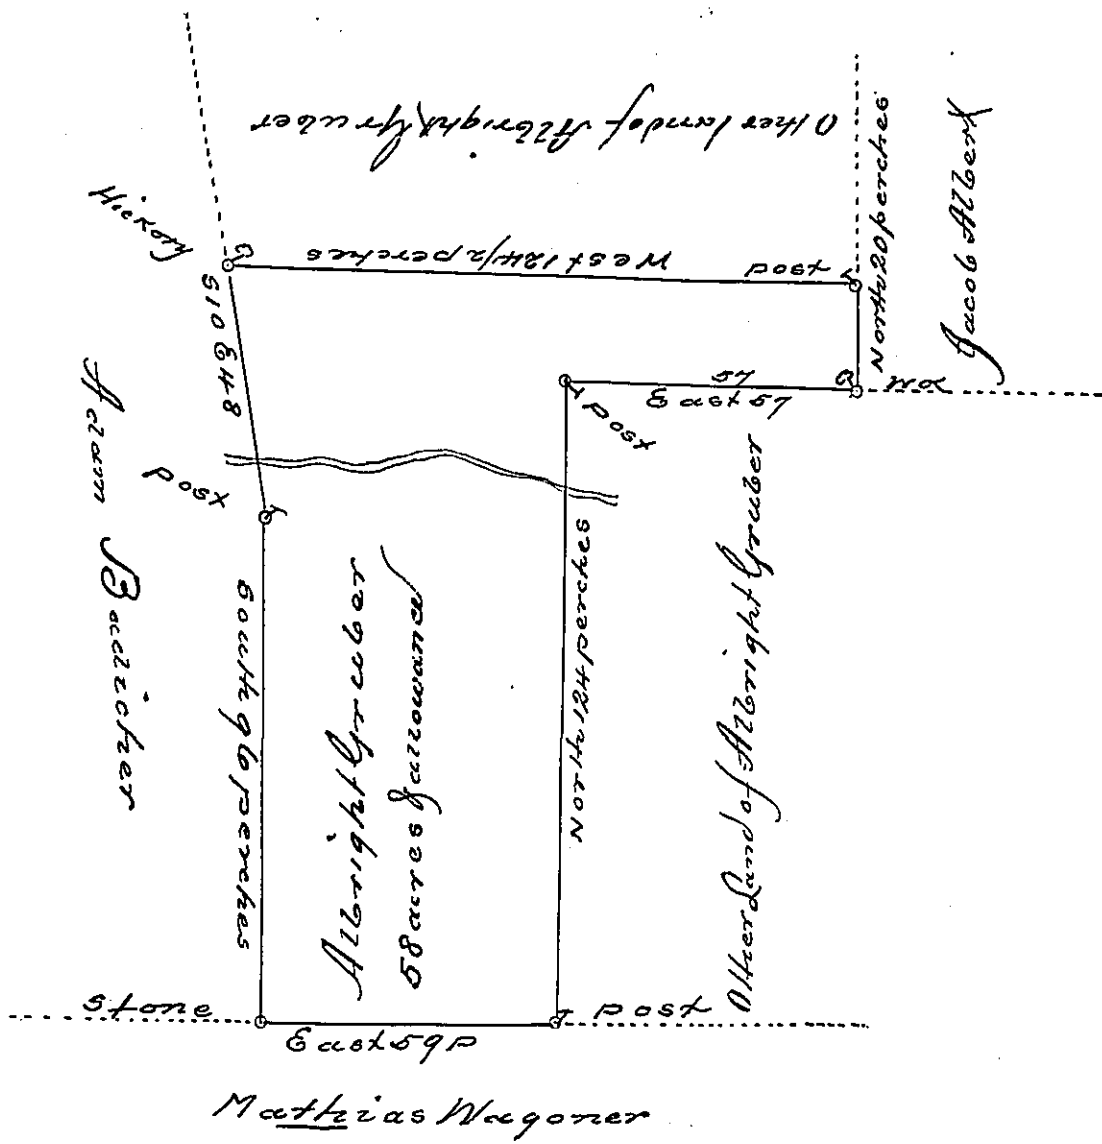 Other land of Albright Gruber
Hickory
West 124 1/2 perches
post
North 20 perches
Jacob Albert
S 10 E 48
57
East 57
W.O.
post
post
Adam
South 96 perches
Albright Gruber
58 acres & allowance
North 124 perches
Other Land of Albright Gruber
Stone
post
East 59 P
Mathias Wagoner